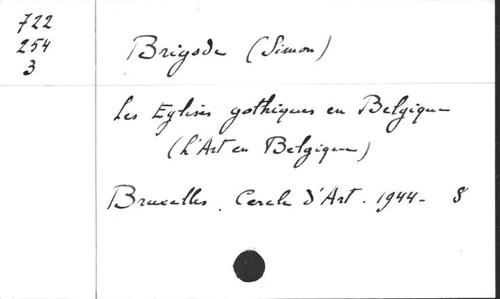 722
254
3
Brigode (Simon)
Les Eglises gothiques en Belgique
(L'Art en Belgique)
Bruxelles. Cercle d'Art. 1944- 8